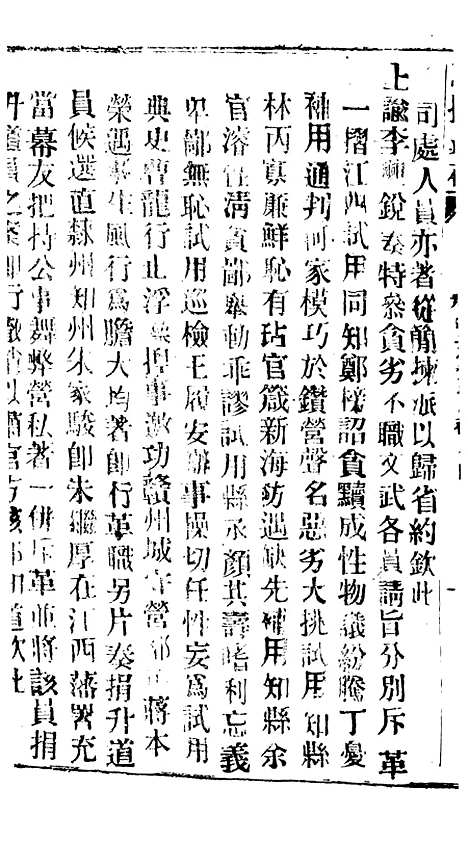 司處人員亦著從簡揀派以歸省約欽此
上諭李銳奏特參貪劣不職文武各員請旨分別斥革
一摺江西試用同知鄭詔貪黷成性物議紛騰丁憂
補用通判何家模巧於鑽營聲名惡劣大挑試用知縣
林丙寡廉鮮恥有玷官箴新海防遇缺先補用知縣余
官濬性淸貪鄙舉動乖謬試用縣丞顏其壽嗜利忘義
卑鄙無恥試用巡檢王履安辦事操切任性妄爲試用
典史曹龍行止浮事邀功贛州城守營蔣本
榮遇事生風行爲膽大均著卽行革職另片奏捐升道
員候選直隸州知州朱家駿卽朱繼厚在江西藩署充
當幕友把持公事舞弊營私著一併斥革並將該員捐
升道員之案卽行撤銷以肅官方該部知道欽此